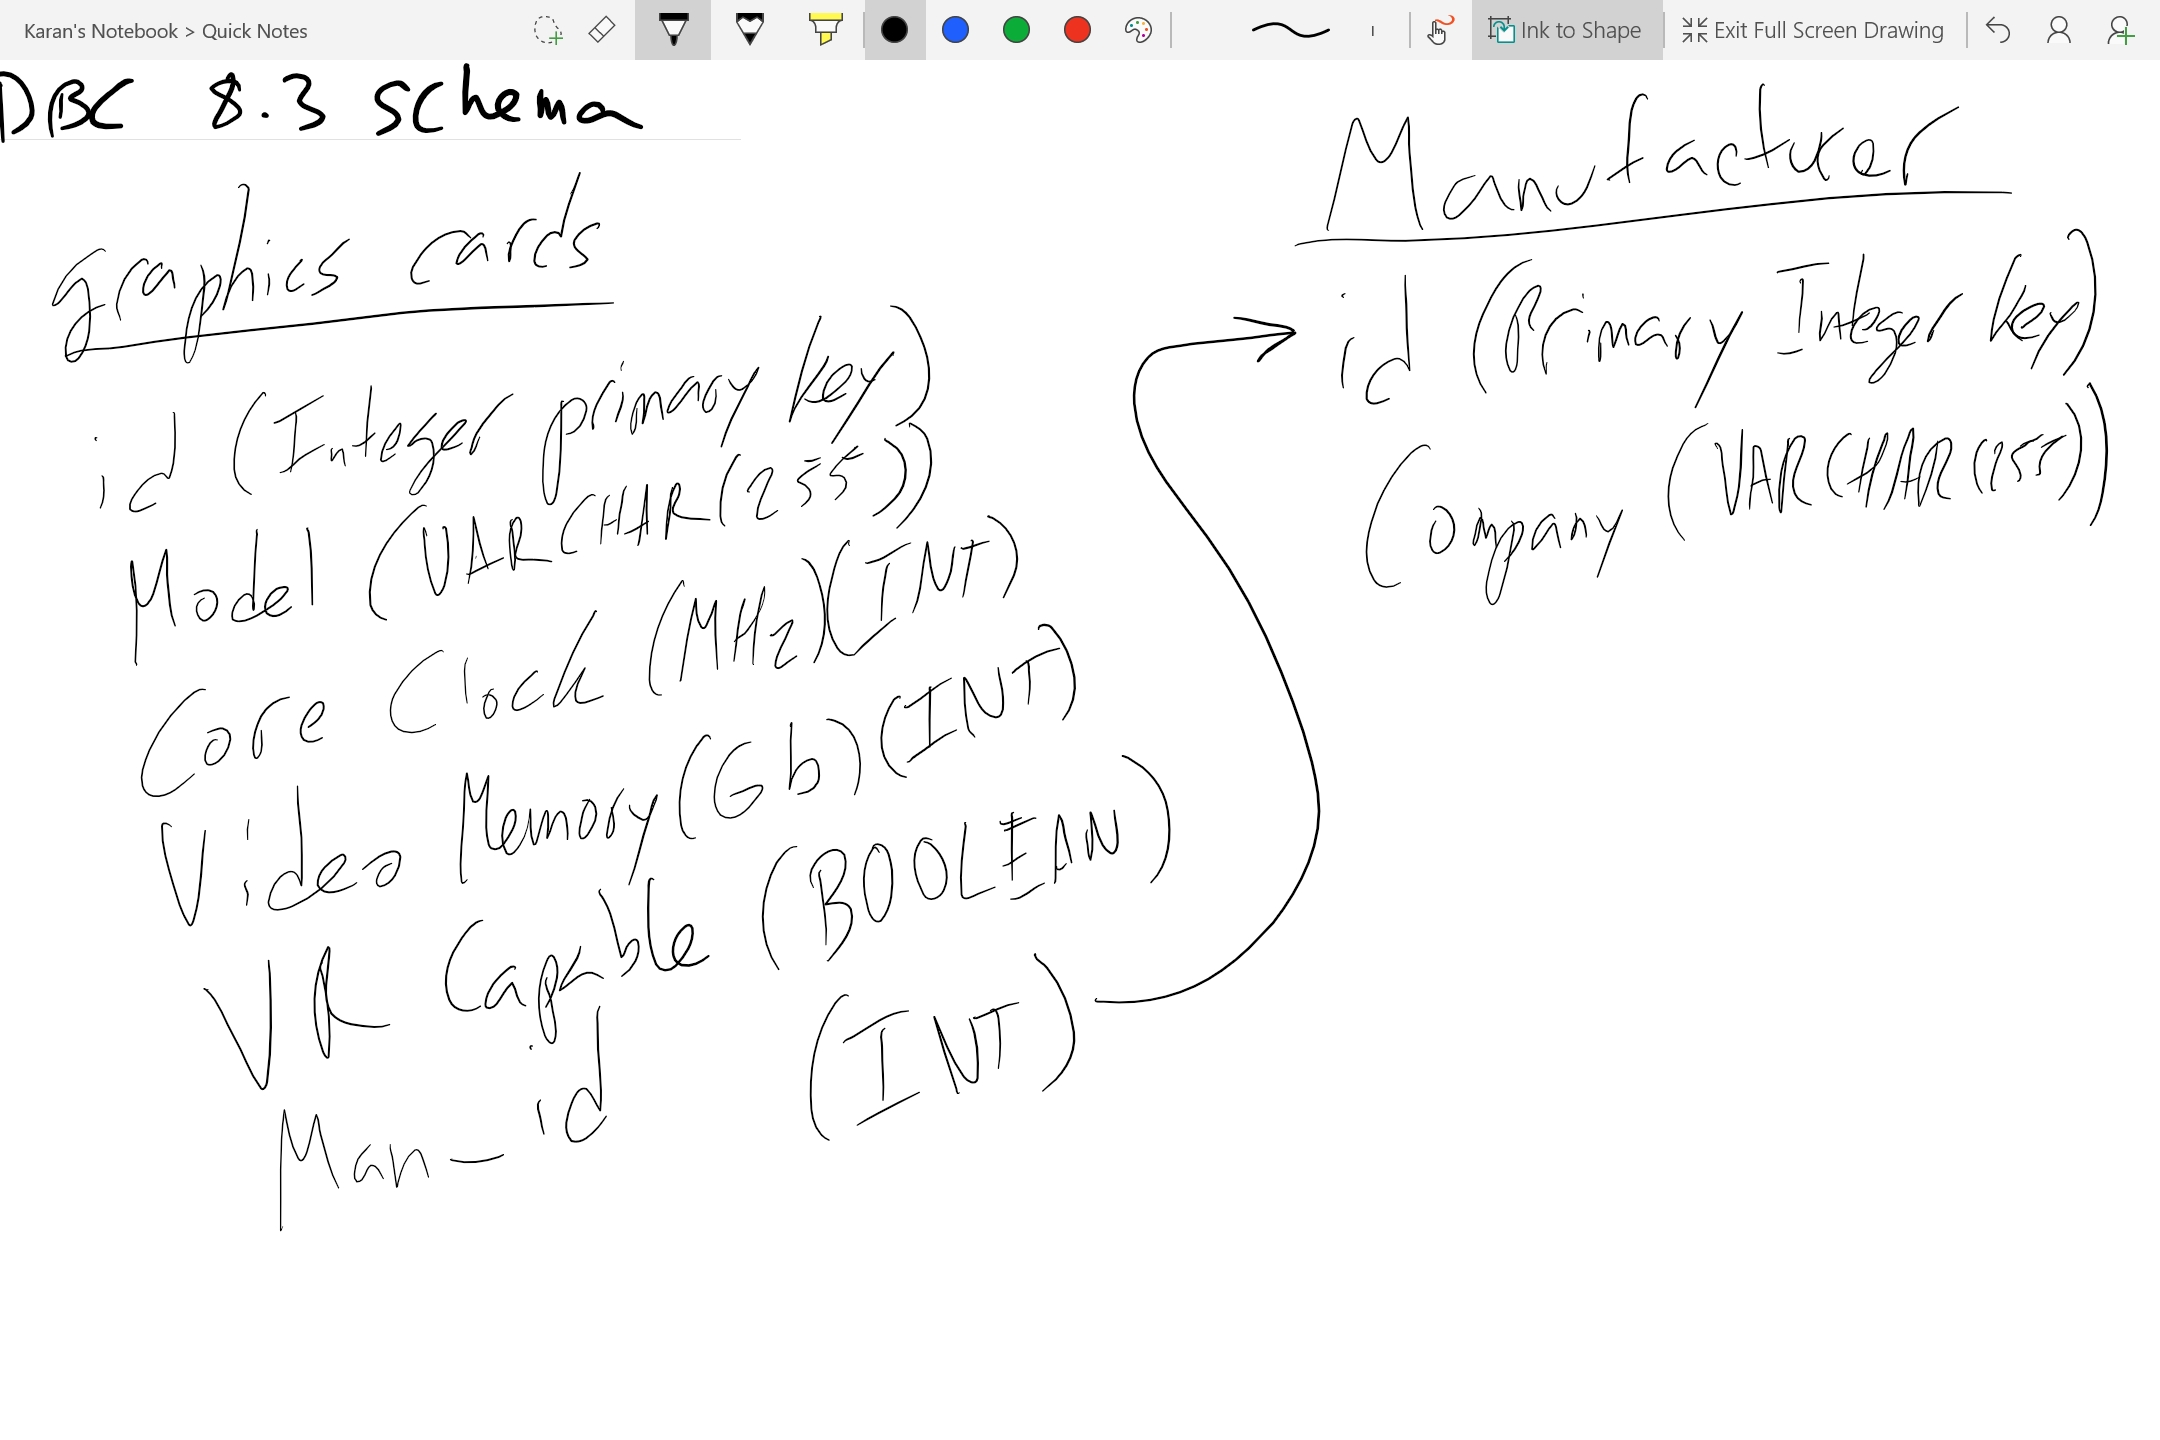 Karan's Notebook > Quick Notes
Ink to Shape
Exit Full Screen Drawing
DBC 8.3 schema
graphics cards
id (Integer primary key)
Model (VARCHAR(255))
Core Clock (MHz)(INT)
Video Memory(Gb)(INT)
VR Capable (BOOLEAN)
Man_id (INT)
Manufacturer
id (Primary Integer key)
Company (VARCHAR(255))